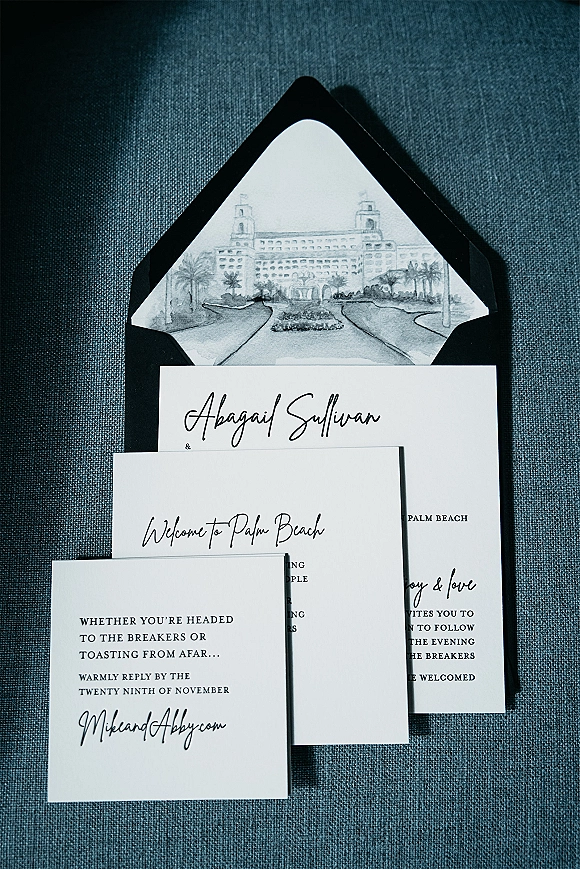 Abagail Sullivan
&
PALM BEACH
joy & love
VITES YOU TO
N TO FOLLOW
THE EVENING
HE BREAKERS
E WELCOMED
Welcome to Palm Beach
ING
OPLE
NG
RS
WHETHER YOU'RE HEADED
TO THE BREAKERS OR
TOASTING FROM AFAR...
WARMLY REPLY BY THE
TWENTY NINTH OF NOVEMBER
MikeandAbby.com